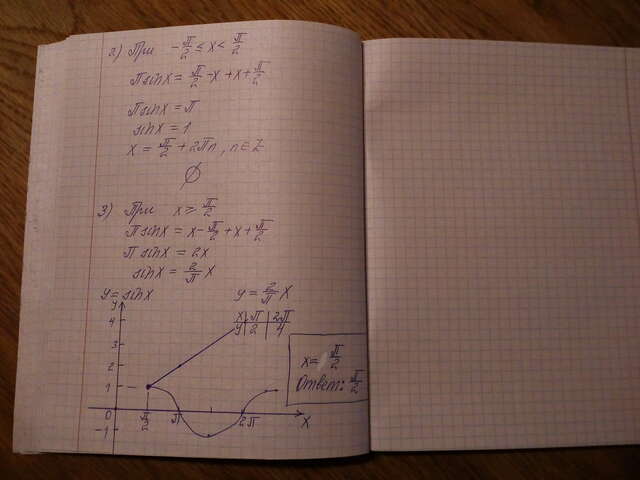 2) При -π/2 ≤ x < π/2
π sin x = π/2 - x + x + π/2
π sin x = π
sin x = 1
x = π/2 + 2πn, n ∈ Z
∅
3) При x ≥ π/2
π sin x = x - π/2 + x + π/2
π sin x = 2x
sin x = 2/π x
y = sin x y = 2/π x
y
x | π | 2π
y | 2 | 4
4
3
2
1
0 π/2 π 2π x
-1
x = π/2
Ответ: π/2